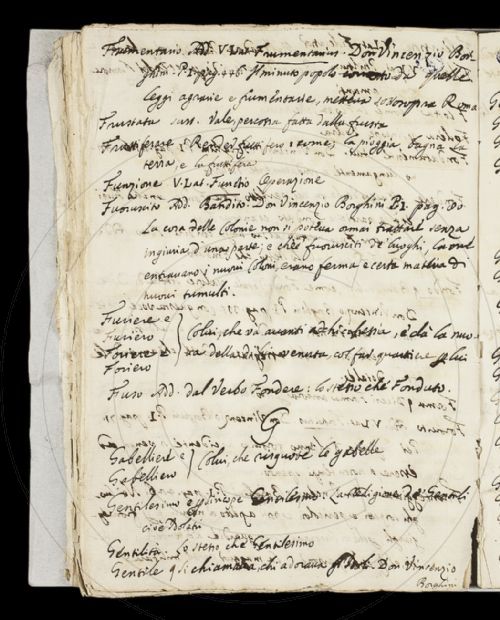 Frumentario. Add. V. Lat. Frumentarius. Don Vincenzio Bor-
ghini. P. I. pag. 446. Il minuto popolo di quelle
leggi agrarie e frumentarie, metteva sottosopra Roma
Frustata sust. Vale percossa fatta dalla frusta
Fruttiferare. Render fruttifero il seme; la pioggia bagna la
terra, e la
Funzione V. Lat. Functio Operazione
Fuoruscito Add. Bandito Don Vincenzio Borghini P. I. pag.
La cosa delle Colonie non si poteva ormai trattare senza
ingiuria d'una parte; e che i fuorusciti de luoghi,
entravano i nuovi Coloni, erano ferma e certa materia di
nuovi tumulti.
Furiere e
Furiero
Foriere e
Foriero
Colui, che va avanti a chicchessia, e dà la nuo-
va della di lui venuta, col far quartiere p lui
Fuso Add. dal Verbo Fondere: lo stesso che Fonduto.
G
Gabelliere e
Gabelliero
Colui, che riscuote le gabelle
Gentilesimo e Gentilesmo. La Religione de Gentili
cioè Idolatri
Gentilità. Lo stesso che Gentilesimo
Gentile si chiamava, chi adorava gl'Idoli. Don Vincenzio
Borghini